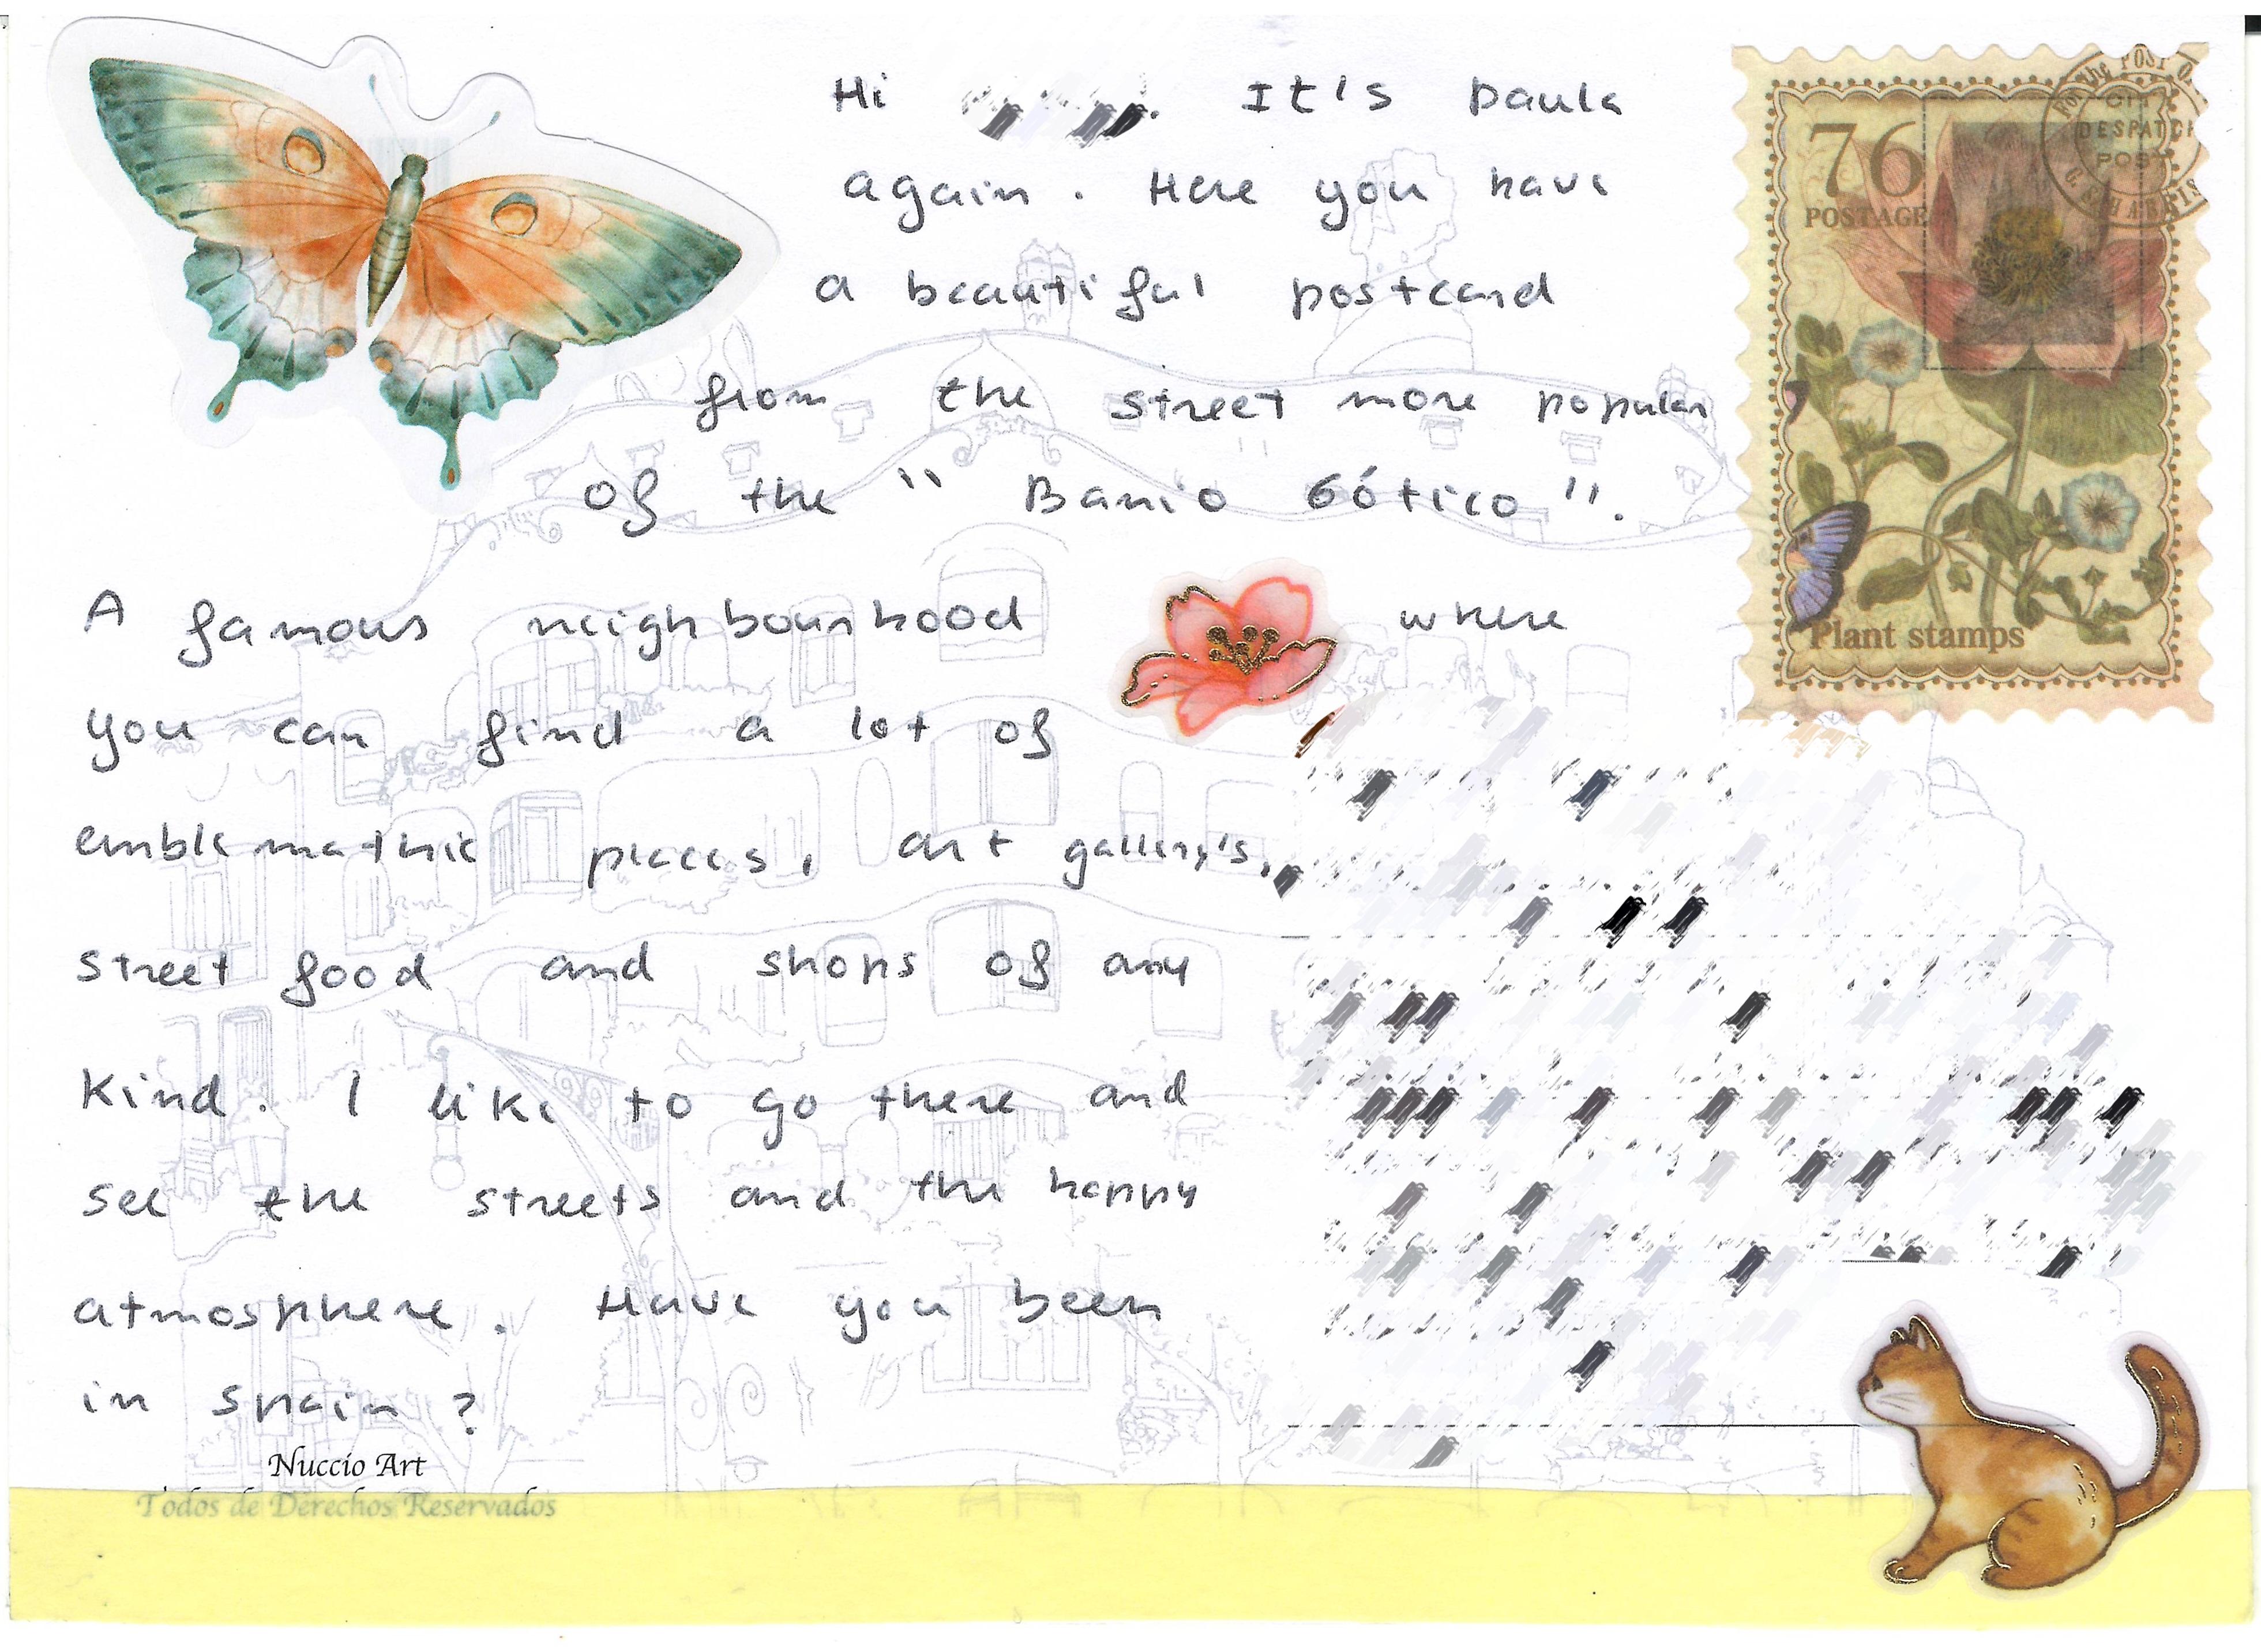 Hi . It's Paula
again. Here you have
a beautiful postcard
from the street more popular
of the "Barrio Gótico".
A famous neighbourhood where
you can find a lot of
emblemathic pieces, art gallery's,
street food and shops of any
kind. I like to go there and
see the streets and the happy
atmosphere. Have you been
in Spain?
Nuccio Art
Todos de Derechos Reservados
76
POSTAGE
Plant stamps
the POST O
CITY
DESPATCH
POST